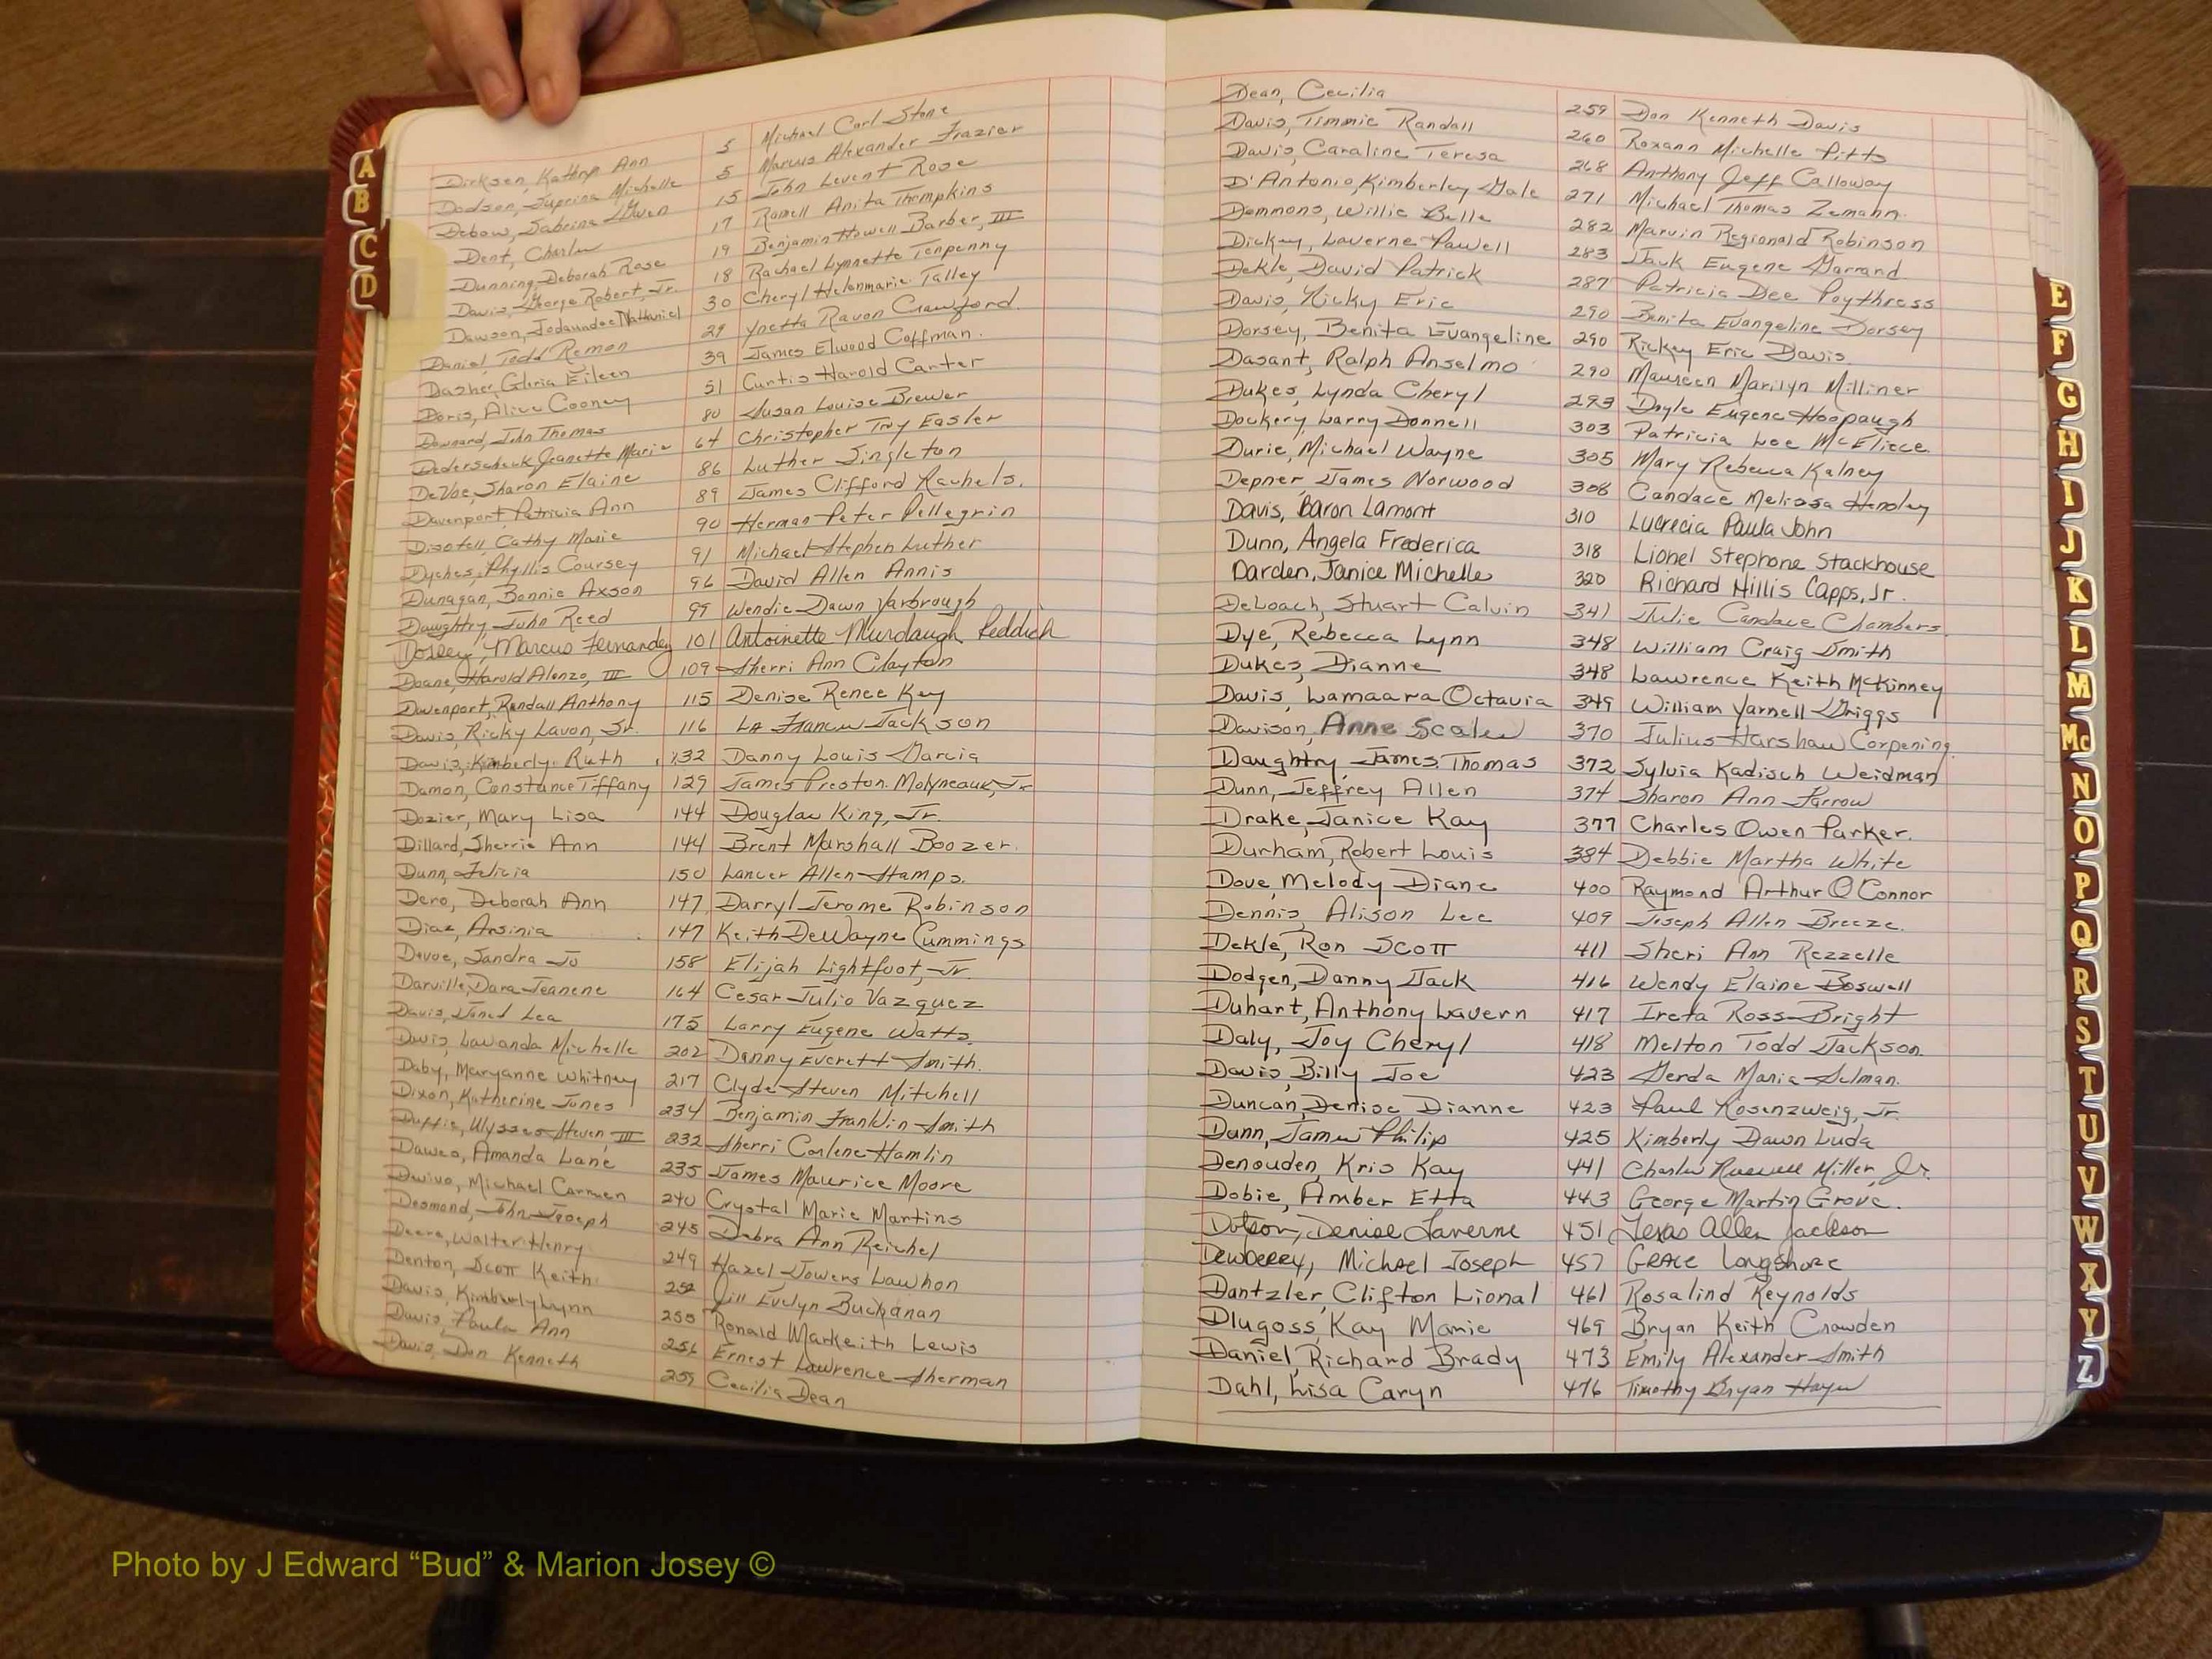 Dirksen, Kathryn Ann 5 Michael Carl Stone
Dodson, Suprina Michelle 5 Marcus Alexander Frazier
Debow, Sabrina Gwen 15 John Levent Rose
Dent, Charles 17 Ramell Anita Thompkins
Dunning, Deborah Rose 19 Benjamin Howell Barber, III
Davis, George Robert, Jr. 18 Rachael Lynnette Tenpenny
Dawson, Nathaniel 30 Cheryl Helenmarie Talley
Daniel, Todd Remon 29 Ynetta Ravon Crawford
Dasher, Gloria Eileen 39 James Elwood Coffman.
Doris, Alice Cooney 51 Curtis Harold Carter
Downard, John Thomas 80 Susan Louise Brewer
Dederscheck, Jeanette Marie 64 Christopher Troy Easler
DeVoe, Sharon Elaine 86 Luther Singleton
Davenport, Patricia Ann 89 James Clifford Rachels.
Disotell, Cathy Marie 90 Herman Peter Pellegrin
Dyches, Phyllis Coursey 91 Michael Stephen Luther
Dunagan, Bonnie Axson 96 David Allen Annis
Daughtry, John Reed 99 Wendie Dawn Yarbrough
Dosley, Marcus Fernandez 101 Antoinette Murdaugh Reddick
Doane, Harold Alonzo, III 109 Sherri Ann Clayton
Davenport, Randall Anthony 115 Denise Renee Key
Davis, Ricky Lavon, Sr. 116 La Frances Jackson
Davis, Kimberly Ruth 132 Danny Louis Garcia
Damon, Constance Tiffany 129 James Preston Molyneaux, Jr.
Dozier, Mary Lisa 144 Douglas King, Jr.
Dillard, Sherrie Ann 144 Brent Marshall Boozer.
Dunn, Felicia 150 Lancer Allen Hamps.
Dero, Deborah Ann 147 Darryl Jerome Robinson
Diaz, Arsinia 147 Keith DeWayne Cummings
Devoe, Sandra Jo 158 Elijah Lightfoot, Jr.
Darville, Dara Jeanene 164 Cesar Julio Vazquez
Davis, Janet Lea 175 Larry Eugene Watts.
Davis, Lawanda Michelle 202 Danny Everett Smith.
Daby, Maryanne Whitney 217 Clyde Steven Mitchell
Dixon, Katherine Jones 234 Benjamin Franklin Smith
Duffie, Ulysses Steven, III 232 Sherri Carlene Hamlin
Dawes, Amanda Lane 235 James Maurice Moore
Dwivo, Michael Carmen 240 Crystal Marie Martins
Desmond, John Joseph 245 Debra Ann Reichel
Deere, Walter Henry 249 Hazel Jowers Lawhon
Denton, Scott Keith 252 Jill Evelyn Buchanan
Davis, Kimberly Lynn 255 Ronald Markeith Lewis
Davis, Paula Ann 256 Ernest Lawrence Sherman
Davis, Don Kenneth 259 Cecilia Dean
Dean, Cecilia 259 Don Kenneth Davis
Davis, Timmie Randall 260 Roxann Michelle Pitts
Davis, Caraline Teresa 268 Anthony Jeff Calloway
D'Antonio, Kimberley Gale 271 Michael Thomas Zemann.
Demmons, Willie Belle 282 Marvin Regionald Robinson
Dickey, Laverne Powell 283 Jack Eugene Garrand
Dekle, David Patrick 287 Patricia Dee Poythress
Davis, Ricky Eric 290 Benita Evangeline Dorsey
Dorsey, Benita Evangeline 290 Rickey Eric Davis.
Dasant, Ralph Anselmo 290 Maureen Marilyn Milliner
Dukes, Lynda Cheryl 293 Doyle Eugene Hoopaugh
Dockery, Larry Donnell 303 Patricia Lee McEliece
Durie, Michael Wayne 305 Mary Rebecca Kalney
Depner, James Norwood 308 Candace Melissa Hensley
Davis, Baron Lamont 310 Lucrecia Paula John
Dunn, Angela Frederica 318 Lionel Stephone Stackhouse
Darden, Janice Michelle 320 Richard Hillis Capps, Jr.
DeLoach, Stuart Calvin 341 Julie Candace Chambers.
Dye, Rebecca Lynn 348 William Craig Smith
Dukes, Dianne 348 Lawrence Keith McKinney
Davis, Lamaara Octavia 349 William Yarnell Griggs
Davison, Anne Scales 370 Julius Harshaw Corpening
Daughtry, James Thomas 372 Sylvia Kadisch Weidman
Dunn, Jeffrey Allen 374 Sharon Ann Farrow
Drake, Janice Kay 377 Charles Owen Parker.
Durham, Robert Louis 384 Debbie Martha White
Dove, Melody Diane 400 Raymond Arthur O'Connor
Dennis, Alison Lee 409 Joseph Allen Breeze.
Dekle, Ron Scott 411 Sheri Ann Rezzelle
Dodgen, Danny Jack 416 Wendy Elaine Boswell
Duhart, Anthony Lavern 417 Ireta Ross Bright
Daly, Joy Cheryl 418 Melton Todd Jackson.
Davis, Billy Joe 423 Gerda Maria Selman.
Duncan, Denise Dianne 423 Paul Rosenzweig, Jr.
Dunn, James Philip 425 Kimberly Dawn Luda
Denouden, Kris Kay 441 Charles Russell Miller, Jr.
Dobie, Amber Etta 443 George Martin Grove.
Dotson, Denise Laverne 451 Texas Allen Jackson
Dewberry, Michael Joseph 457 Grace Longshore
Dantzler, Clifton Lional 461 Rosalind Reynolds
Dlugoss, Kay Marie 469 Bryan Keith Crowden
Daniel, Richard Brady 473 Emily Alexander Smith
Dahl, Lisa Caryn 476 Timothy Bryan Hayes
A
B
C
D
E
F
G
H
I
J
K
L
M
Mc
N
O
P
Q
R
S
T
U
V
W
X
Y
Z
Photo by J Edward “Bud” & Marion Josey ©